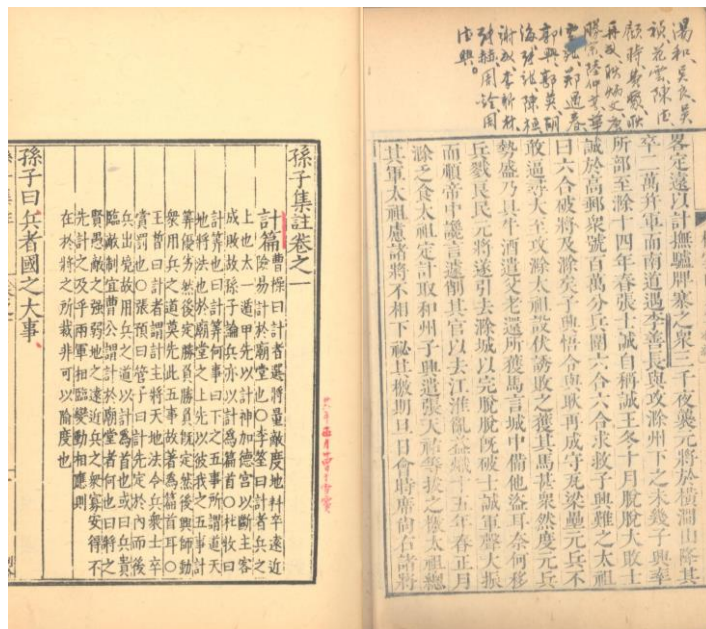 湯和、吳良、吳
禎、花雲、陳德
顧時、費聚、耿
再成、耿炳文、唐
勝宗、陸仲亨、華
雲龍、鄭遇春
郭興、郭英、胡
海、張龍、陳桓
謝成、李新材
張赫、周詮、周
德興。
畧定遠以計撫驢牌寨之衆三千夜襲元將於橫澗山降其
卒二萬并軍而南道遇李善長與攻滁州下之未幾子興率
所部至滁十四年春張士誠自稱誠王冬十月脫脫大敗士
誠於高郵衆號百萬分兵圍六合六合求救子興難之太祖
曰六合破將及滁矣子興悟令與耿再成守瓦梁壘元兵不
敢逼尋大至攻滁太祖設伏誘敗之獲其馬甚衆然度元兵
勢盛乃具牛酒遣父老還所獲馬言城中備他盜耳奈何移
兵戮良民元將遂引去滁城以完脫脫旣破士誠軍聲大振
而順帝中讒言遽削其官以去江淮亂益熾十五年春正月
滁乏食太祖定計取和州子興遣張天祐等拔之檄太祖總
其軍太祖慮諸將不相下祕其檄期旦日會時席尚右諸將
孫子集註卷之一
計篇
曹操曰計者選將量敵度地料卒遠近
險易計於廟堂也○李筌曰計者兵之
上也太一遁甲先以計神加德宮以斷主客
成敗故孫子論兵亦以計爲篇首○杜牧曰
計筭也曰計筭何事曰下之五事所謂道天
地將法也於廟堂之上先以彼我之五事計
筭優劣然後定勝負勝負旣定然後興師動
衆用兵之道莫先此五事故著爲篇首耳○
王晳曰計者謂計主將天地法令兵衆士卒
賞罰也○張預曰管子曰計先定於內而後
兵出境故用兵之道以計爲首也或曰兵貴
臨敵制宜曹公謂計於廟堂者何也曰將之
賢愚敵之強弱地之遠近兵之衆寡安得不
先計之及乎兩軍相臨變動相應則
在於將之所裁非可以隃度也
孫子曰兵者國之大事